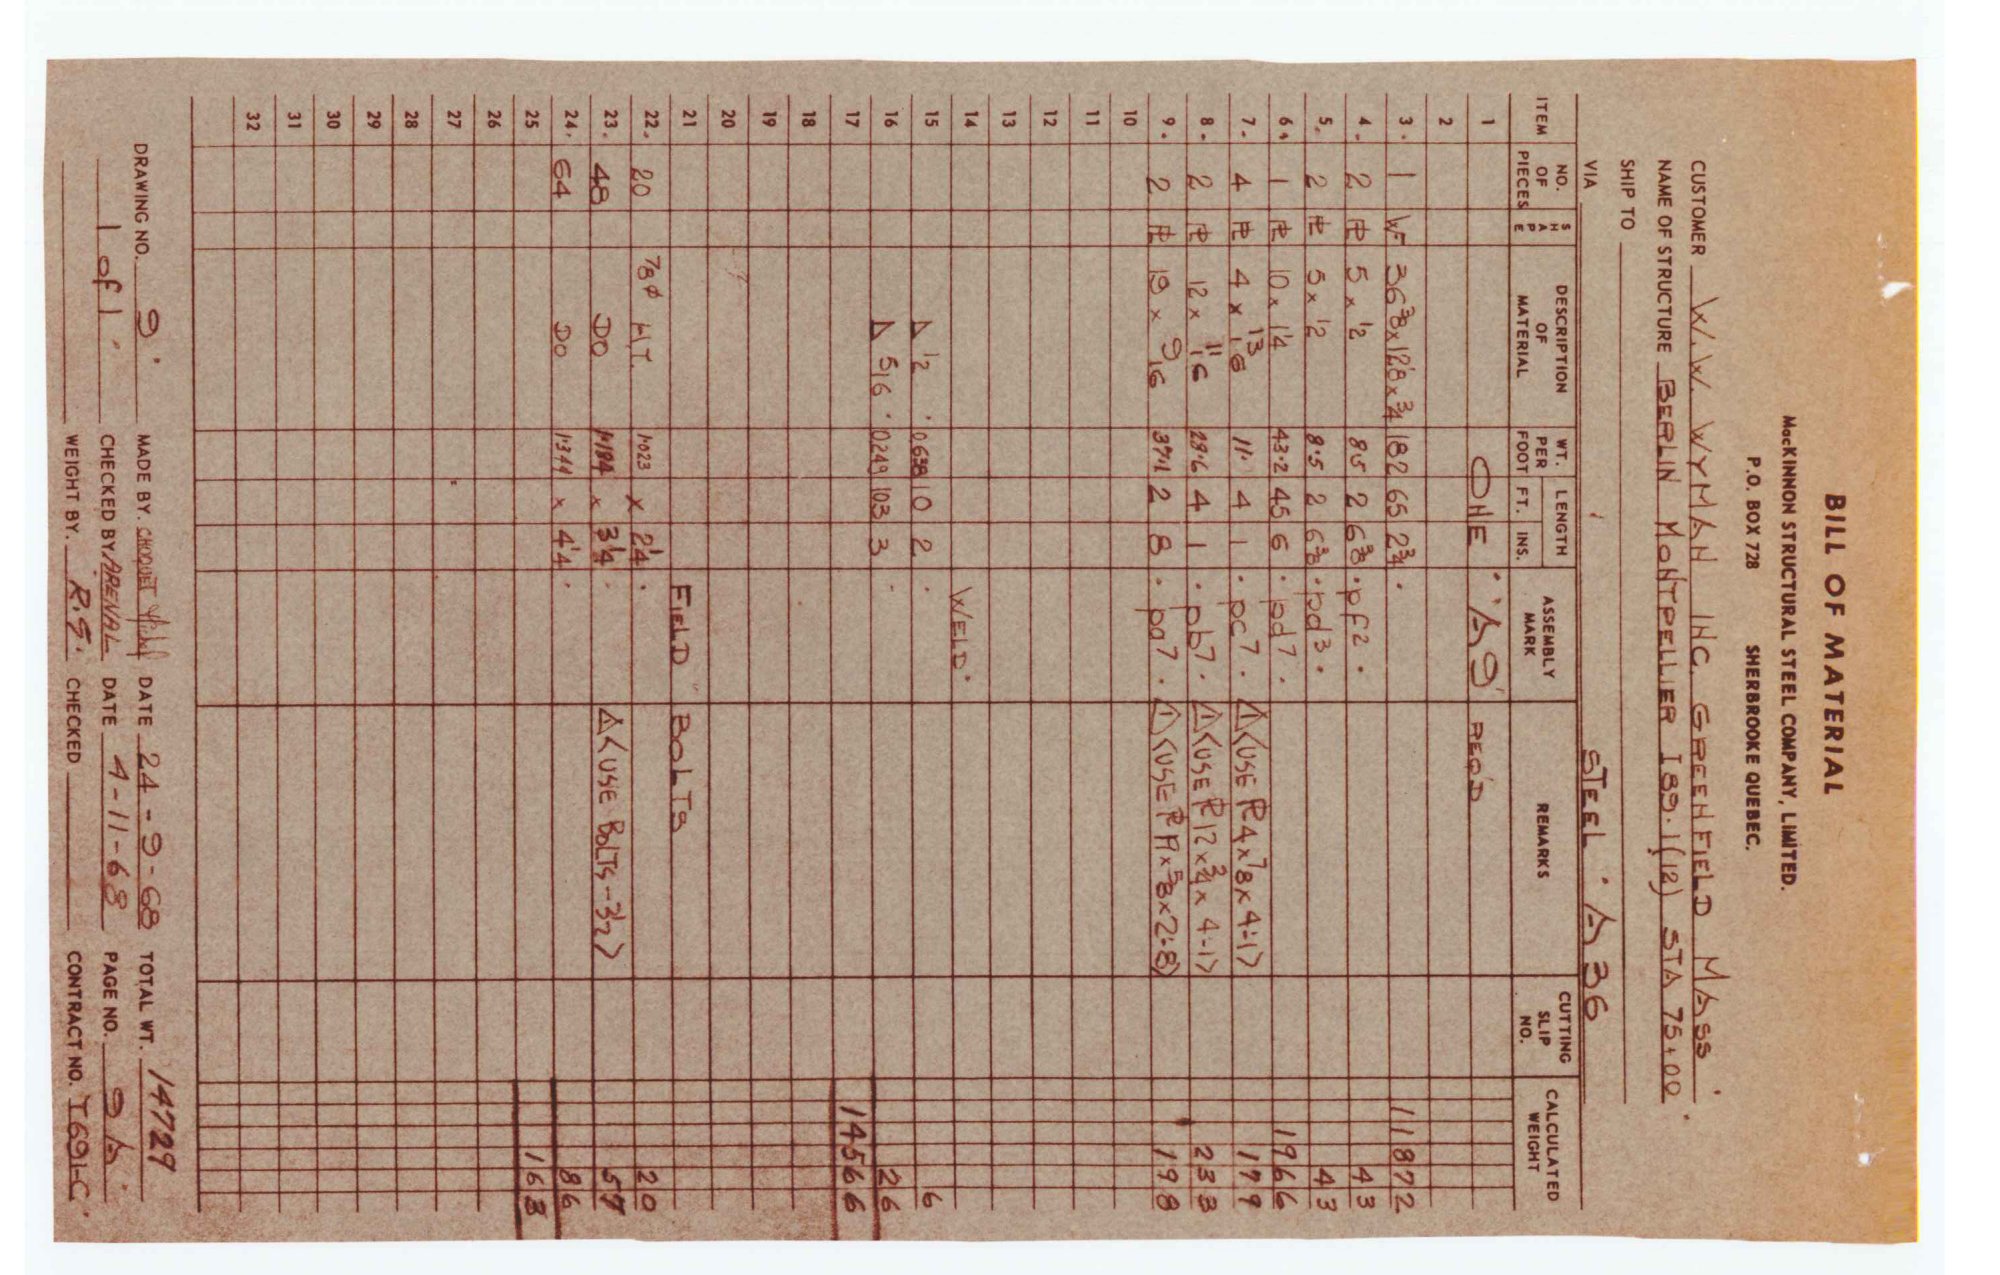 BILL OF MATERIAL
MacKINNON STRUCTURAL STEEL COMPANY, LIMITED.
P.O. BOX 728 SHERBROOKE QUEBEC.
CUSTOMER W.W. WYMAN INC. GREENFIELD MASS.
NAME OF STRUCTURE BERLIN MONTPELLIER I 89-1(12) STA 75+00.
SHIP TO
VIA STEEL · A 36
ITEM NO. OF PIECES SHAPE DESCRIPTION OF MATERIAL WT. PER FOOT LENGTH FT. INS. ASSEMBLY MARK REMARKS CUTTING SLIP NO. CALCULATED WEIGHT
1 ONE 'A9' REQ'D
2
3. 1 WF 36 3/8 x 12 1/8 x 3/4 182 65 2 3/4 . 11872
4. 2 PL 5 x 1/2 8.5 2 6 3/8 . pf2 . 43
5. 2 PL 5 x 1/2 8.5 2 6 3/8 . pd3 . 43
6. 1 PL 10 x 1 1/4 43.2 45 6 . pd7 . 1966
7. 4 PL 4 x 13/16 11. 4 1 . pc7 . △1 <USE PL 4 x 7/8 x 4-1> 179
8. 2 PL 12 x 11/16 28.6 4 1 . pb7 . △1 <USE PL 12 x 3/4 x 4-1> 233
9. 2 PL 19 x 9/16 37.1 2 8 . pa7 . △1 <USE PL 19 x 5/8 x 2-8> 198
10
11
12
13
14 WELD.
15 △ 1/2 . 0.638 10 2 . 6
16 △ 5/16 . 0.249 103 3 . 26
17 14566
18
19
20
21 FIELD BOLTS
22. 20 7/8 φ H.T. 1.023 x 2 1/4 . 20
23. 48 DO 1.184 x 3 1/4 . △1 <USE BOLTS-3 1/2> 57
24. 64 DO 1.344 x 4 1/4 . 86
25 163
26
27
28
29
30
31
32
DRAWING NO. 9 MADE BY. CHOQUET DATE 24-9-68 TOTAL WT. 14729
1 of 1 CHECKED BY ARENAL DATE 4-11-68 PAGE NO. 9 A
WEIGHT BY. R.S. CHECKED CONTRACT NO. T691-C